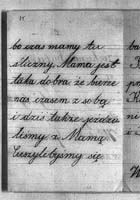 bo czas mamy tu
śliczny. Mama jest
taka dobra że bierze
nas czasem z sobą
i dziś także jedzie
liśmy z Mamą.
Cieszyłybyśmy się